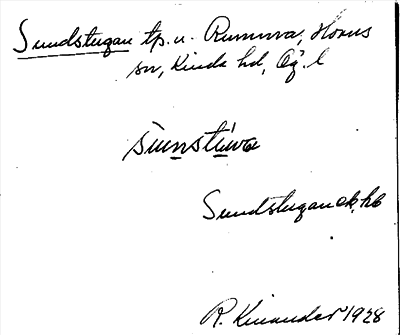 Sundstugan tp. u. Rumma, Horns
sn, Kinda hd, Ög. l
Sundstugan ek. kb
R. Kinander 1928